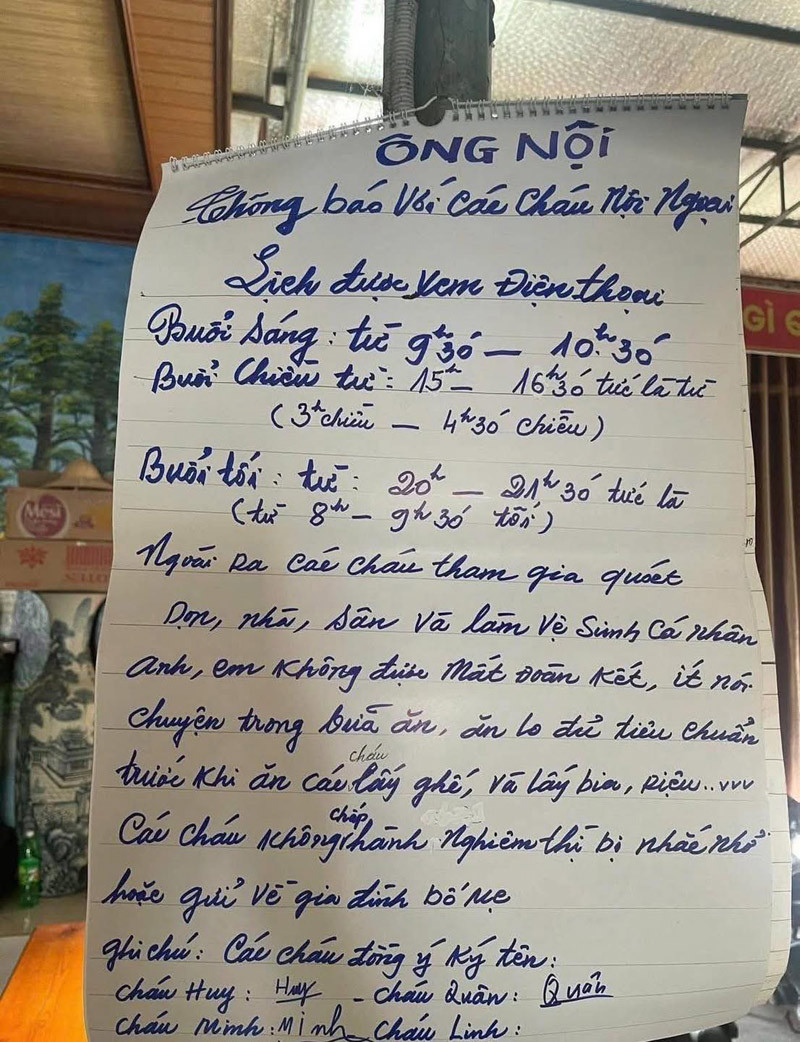 ÔNG NỘI
Thông báo Với Các Cháu Nội Ngoại
Lịch được Xem Điện thoại
Buổi Sáng: từ 9h30' - 10h.30'
Buổi Chiều từ: 15h - 16h30' tức là từ
(3h chiều - 4h30' chiều)
Buổi tối: từ: 20h - 21h30' tức là
(từ 8h - 9h30' tối)
Ngoài Ra các cháu tham gia quét
Dọn, nhà, Sân Và làm Vệ Sinh Cá nhân
anh, em Không được Mất Đoàn Kết, ít nói
chuyện trong bữa ăn, ăn lo đủ tiêu chuẩn
trước Khi ăn các cháu lấy ghế, và lấy bia, Riệu..vvv
Các cháu Không chấp hành Nghiêm thì bị nhắc nhở
hoặc gửi Về gia đình bố Mẹ
ghi chú: Các cháu đồng ý Ký tên:
cháu Huy: Huy - Cháu Quân: Quân
cháu Minh: Minh Cháu Linh:
GÌ
Mesi